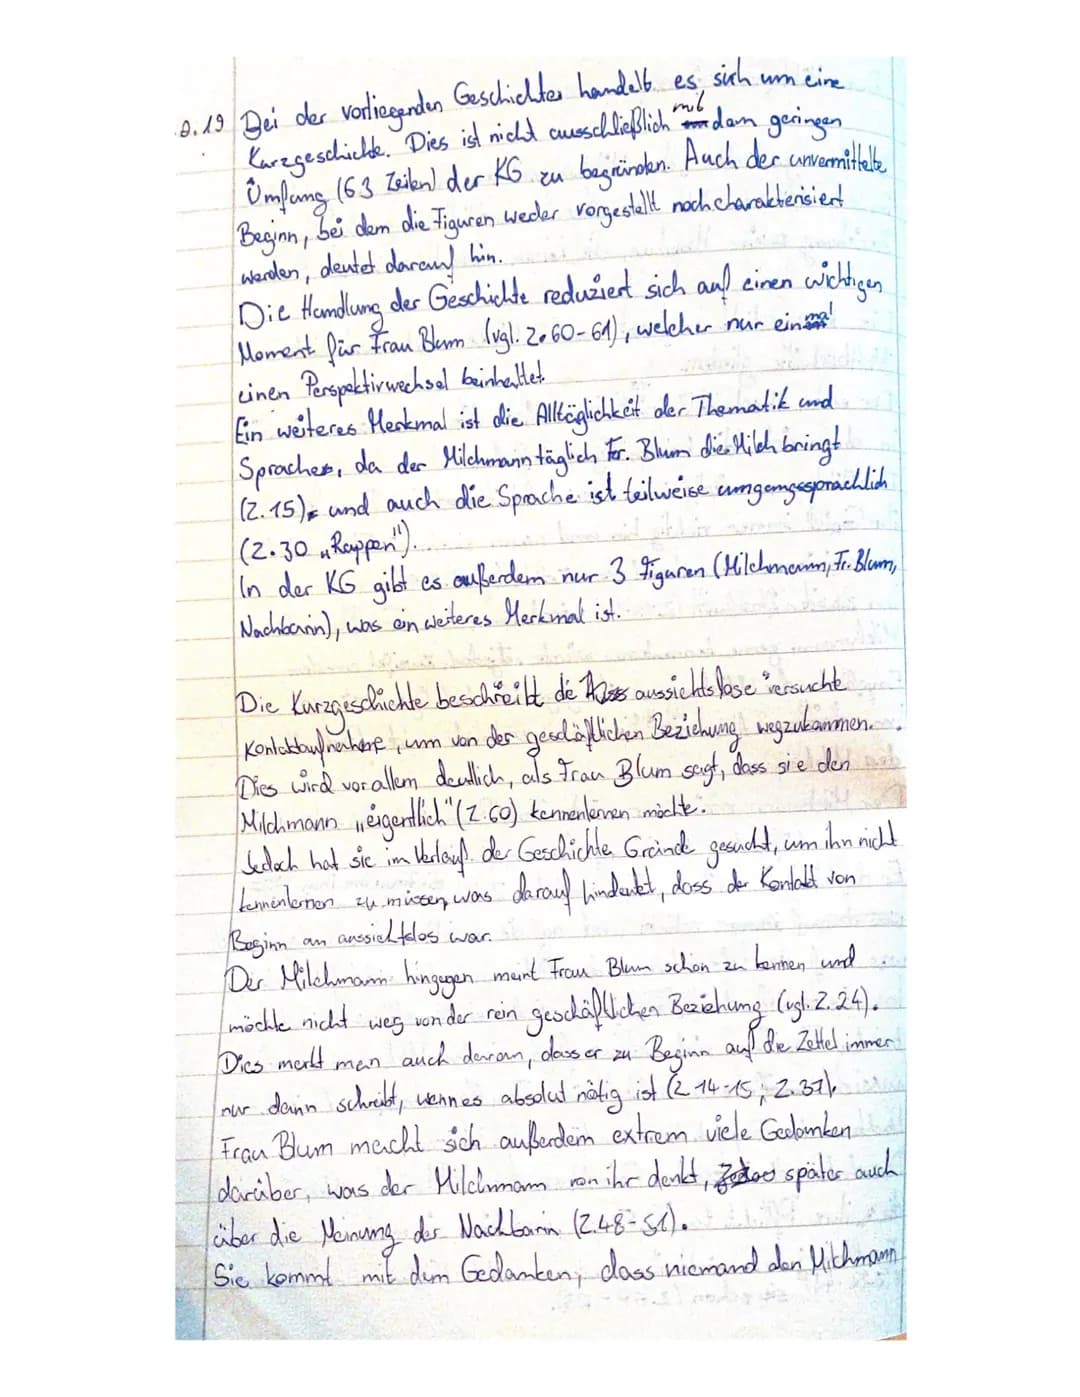 9.19 Bei der vorliegenden Geschichte handelt es sich um eine
Kurzgeschichte. Dies ist nicht ausschließlich mit dem geringen
Umfang (63 Zeilen) der KG zu begründen. Auch der unvermittelte
Beginn, bei dem die Figuren weder vorgestellt noch charakterisiert
werden, deutet darauf hin.
Die Handlung der Geschichte reduziert sich auf einen wichtigen
Moment für Frau Blum (vgl. Z.60-61), welcher nur einmal
einen Perspektivwechsel beinhaltet.
Ein weiteres Merkmal ist die Alltäglichkeit der Thematik und
Sprache, da der Milchmann täglich Fr. Blum die Milch bringt
(Z.15) und auch die Sprache ist teilweise umgangssprachlich
(Z.30 „Rappen").
In der KG gibt es außerdem nur 3 Figuren (Milchmann, Fr. Blum,
Nachbarin), was ein weiteres Merkmal ist.
Die Kurzgeschichte beschreibt de aussichtslose versuchte
Kontaktaufnahme, um von der geschäftlichen Beziehung wegzukommen.
Dies wird vor allem deutlich, als Frau Blum sagt, dass sie den
Milchmann „eigentlich" (Z.60) kennenlernen möchte.
Jedoch hat sie im Verlauf der Geschichte Gründe gesucht, um ihn nicht
kennenlernen zu müssen, was darauf hindeutet, dass der Kontakt von
Beginn an aussichtslos war.
Der Milchmann hingegen meint Frau Blum schon zu kennen und
möchte nicht weg von der rein geschäftlichen Beziehung (vgl. Z.24).
Dies merkt man auch daran, dass er zu Beginn auf die Zettel immer
nur dann schreibt, wenn es absolut nötig ist (Z 14-15; Z.37).
Frau Blum macht sich außerdem extrem viele Gedanken
darüber, was der Milchmann von ihr denkt, später auch
über die Meinung der Nachbarin (Z.48-51).
Sie kommt mit dem Gedanken, dass niemand den Milchmann